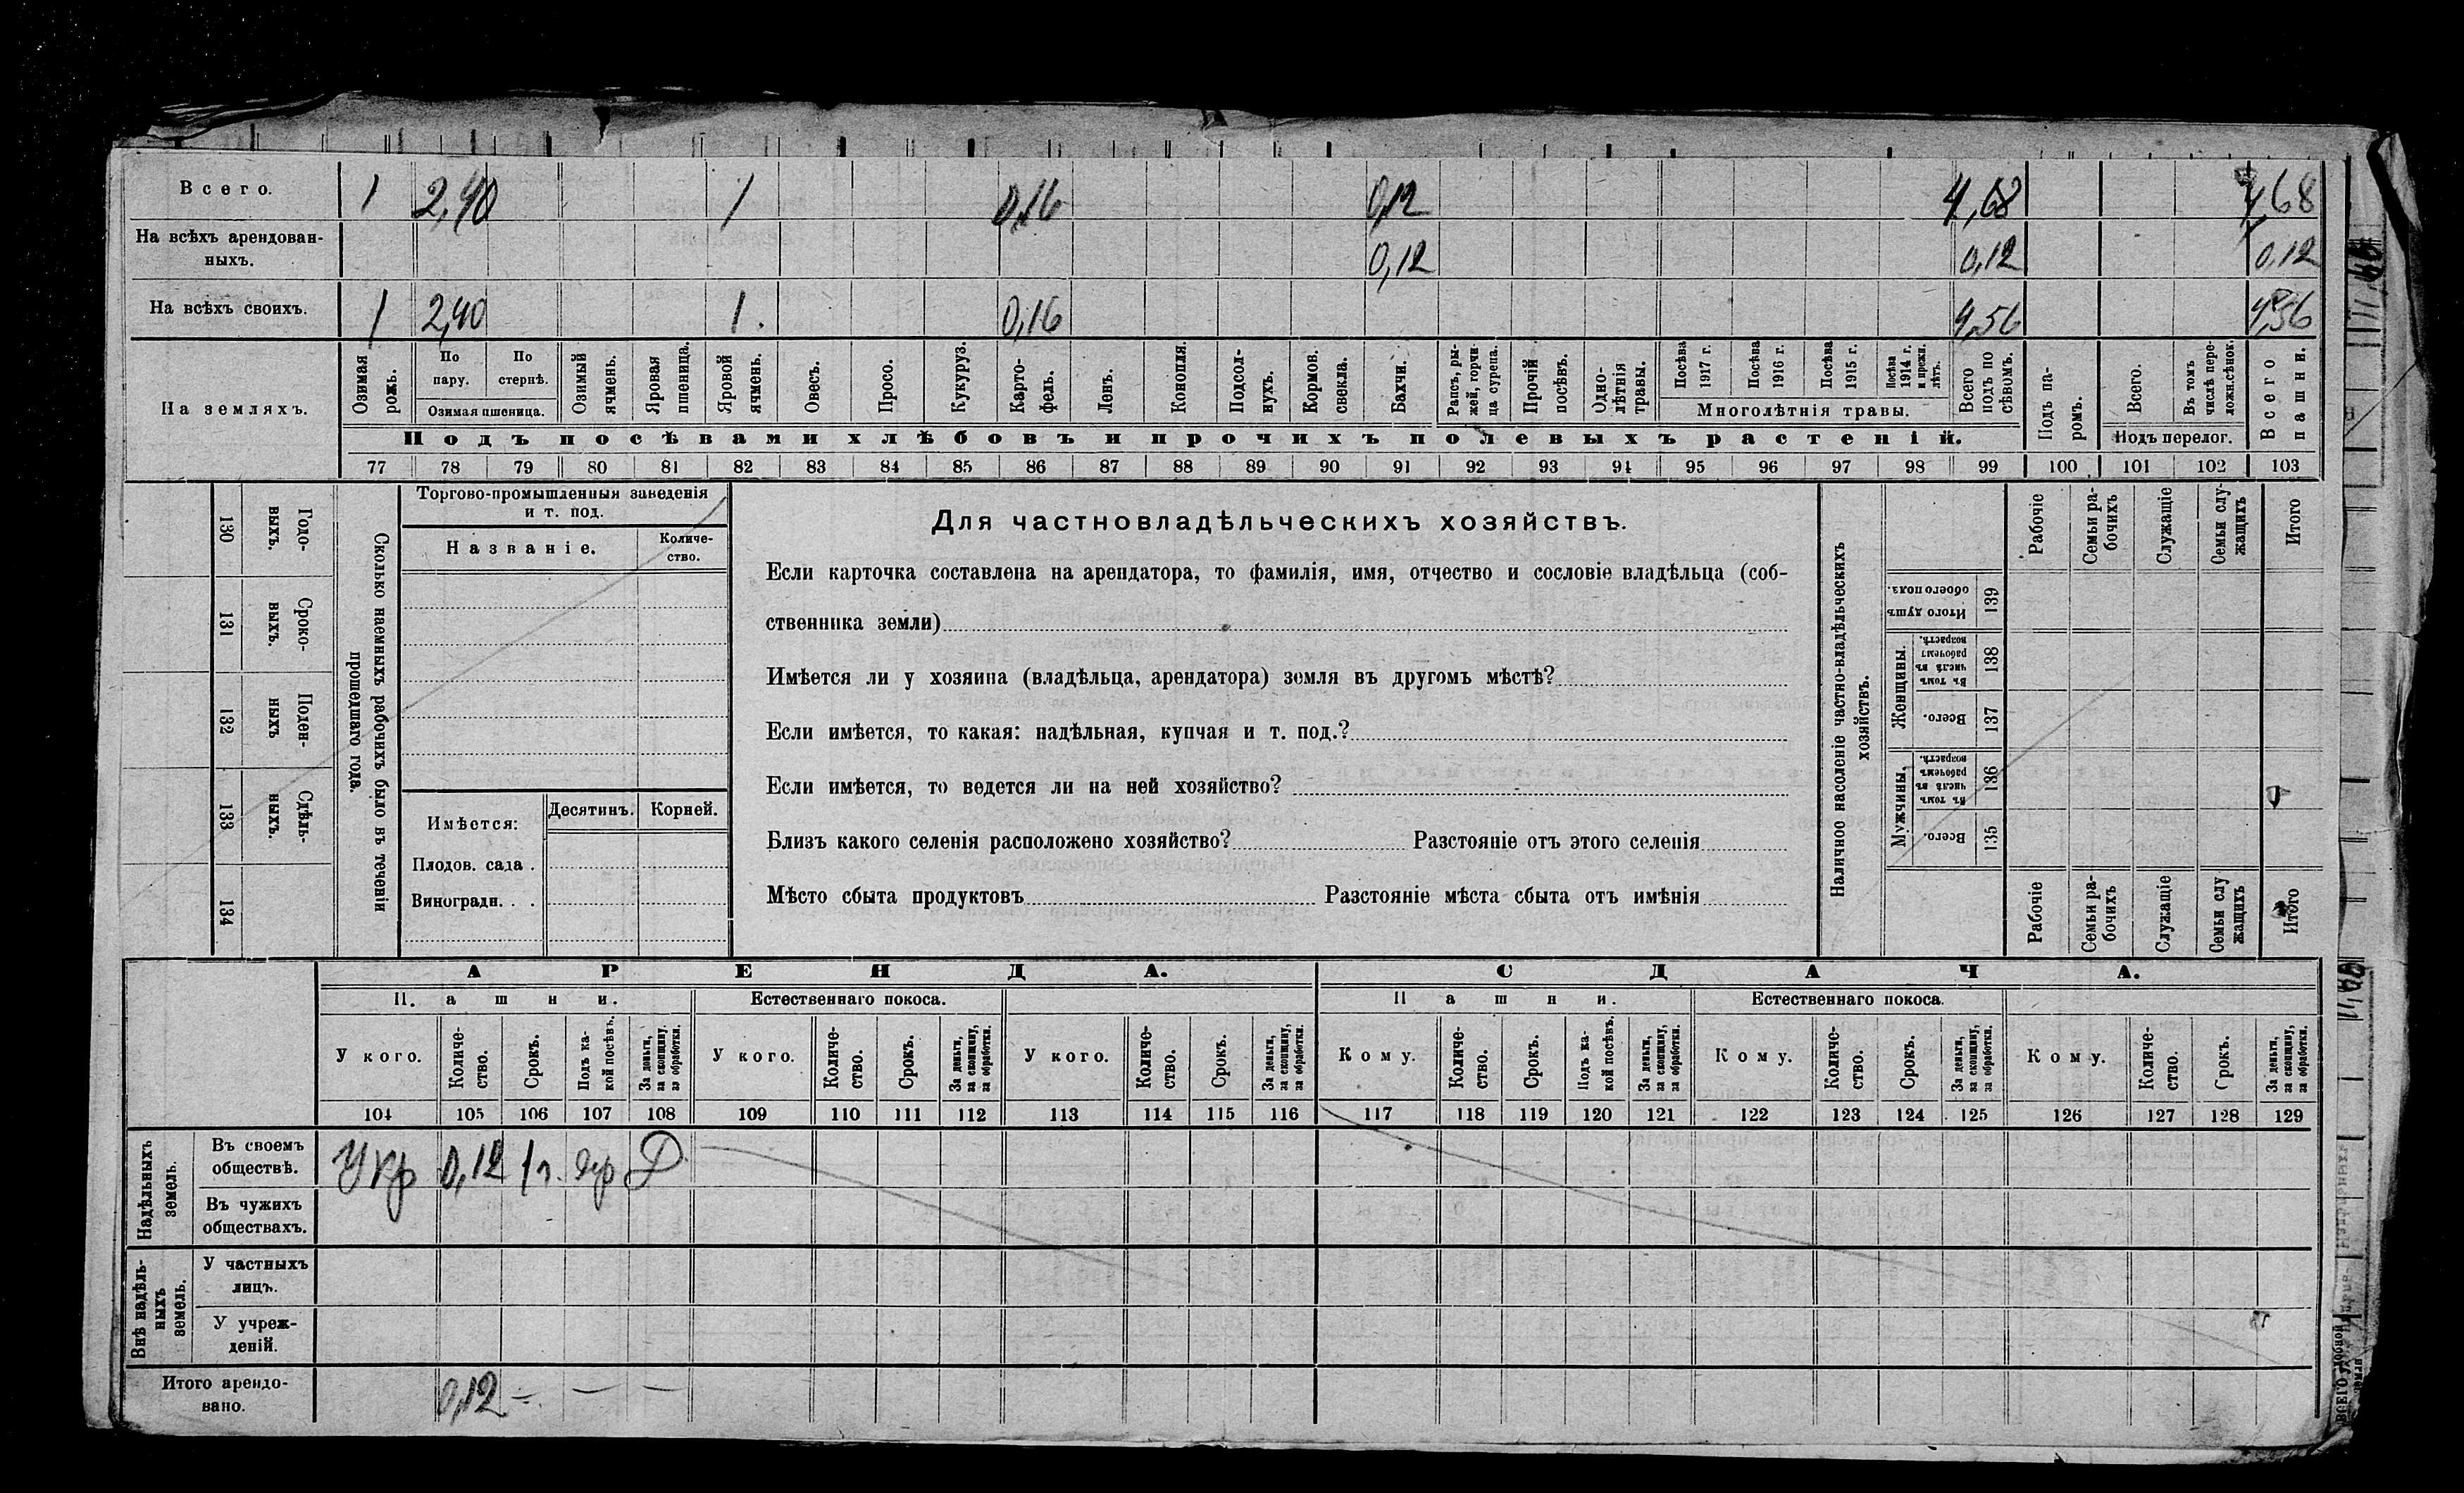 Всего. 1 2,40 1 0,16 0,12 4,68 4,68
На всѣхъ арендован-
ныхъ. 0,12 0,12 0,12
На всѣхъ своихъ. 1 2,40 1. 0,16 4,56 4,56
На земляхъ.
Озимая рожь.
По пару.
По стернѣ.
Озимая пшеница.
Озимый ячмень.
Яровая пшеница.
Яровой ячмень.
Овесъ.
Просо.
Кукуруз.
Карто-
фель.
Ленъ.
Конопля.
Подсол-
нухъ.
Кормов. свекла.
Бахчи.
Рапсъ, ры-
жей, горчи-
ца сурепа.
Прочій посѣвъ.
Одно-
лѣтнія травы.
Посѣва 1917 г.
Посѣва 1916 г.
Посѣва 1915 г.
Посѣва 1914 г. и прежн. лѣтъ.
Многолѣтнія травы.
Всего подъ по сѣвомъ.
Подъ па-
ромъ.
Всего.
Въ томъ числѣ пере-
ложн.сѣнок.
Подъ перелог.
Всего пашни.
Подъ посѣвами хлѣбовъ и прочихъ полевыхъ растеній.
77 78 79 80 81 82 83 84 85 86 87 88 89 90 91 92 93 94 95 96 97 98 99 100 101 102 103
130 Годо-
выхъ.
131 Сроко-
выхъ.
132 Поден-
ныхъ
133 Сдѣль-
ныхъ.
134
Сколько наемныхъ рабочихъ было въ теченіи
прошедшаго года.
Торгово-промышленныя заведенія
и т. под.
Названіе.
Количе-
ство.
Имѣется:
Десятинъ. Корней.
Плодов. сада .
Виноградн. . .
Для частновладѣльческихъ хозяйствъ.
Если карточка составлена на арендатора, то фамилія, имя, отчество и сословіе владѣльца (соб-
ственника земли)
Имѣется ли у хозяина (владѣльца, арендатора) земля въ другомъ мѣстѣ?
Если имѣется, то какая: надѣльная, купчая и т. под.?
Если имѣется, то ведется ли на ней хозяйство?
Близъ какого селенія расположено хозяйство? Разстояніе отъ этого селенія
Мѣсто сбыта продуктовъ Разстояніе мѣста сбыта отъ имѣнія
Наличное населеніе частно-владѣльческихъ
хозяйствъ.
Рабочіе
Семьи ра-
бочихъ
Служащіе
Семьи слу-
жащихъ
Итого
Итого душъ обоего пола. 139
Женщины.
Въ томъ числѣ въ рабочемъ возрастѣ. 138
Всего. 137
Мужчины.
Въ томъ числѣ въ рабочемъ возрастѣ. 136
Всего. 135
Рабочіе
Семьи ра-
бочихъ
Служащіе
Семьи слу
жащихъ
Итого
АРЕНДА. СДАЧА.
Пашни. Естественнаго покоса. Пашни. Естественнаго покоса.
У кого.
Количе-
ство.
Срокъ.
Подъ ка-
кой посѣвъ.
За деньги,
за скопщину,
за обработки.
У кого.
Количе-
ство.
Срокъ.
За деньги,
за скопщину,
за обработки.
У кого.
Количе-
ство.
Срокъ.
За деньги,
за скопщину,
за обработки.
Кому.
Количе-
ство.
Срокъ.
Подъ ка-
кой посѣвъ.
За деньги,
за скопщину,
за обработки.
Кому.
Количе-
ство.
Срокъ.
За деньги,
за скопщину,
за обработки.
Кому.
Количе-
ство.
Срокъ.
За деньги,
за скопщину,
за обработки.
104 105 106 107 108 109 110 111 112 113 114 115 116 117 118 119 120 121 122 123 124 125 126 127 128 129
Надѣльныхъ
земель.
Въ своемъ
обществѣ. У кр 0,12 1 г. Д
Въ чужихъ
обществахъ.
Внѣ надѣль-
ныхъ
земель.
У частныхъ
лицъ.
У учреж-
деній.
Итого арендо-
вано. 0,12 — — —